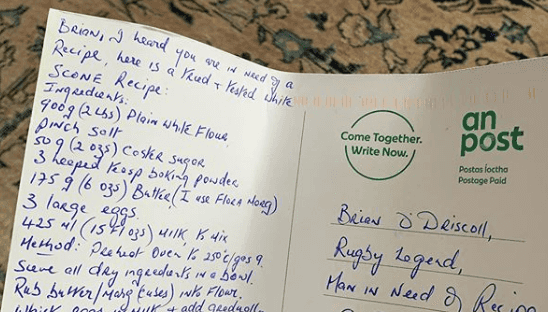 Brian, I heard you are in need of a
Recipe, here is a tried + tested White
Scone Recipe:
Ingredients:
900g (2 Lbs) Plain White Flour
pinch Salt
50g (2 ozs) Caster sugar
3 heaped teasp baking powder
175g (6 ozs) Butter (I use Flora Marg)
3 large eggs
425 ml (15 Fl ozs) Milk, to Mix
Method: Preheat Oven to 250°c/gas 9.
Sieve all dry ingredients in a bowl.
Rub butter/marg (cubes) into Flour.
Whisk eggs + add
Come Together.
Write Now.
an
post
Postas íoctha
Postage Paid
Brian O Driscoll,
Rugby Legend,
Man in Need of Recipe